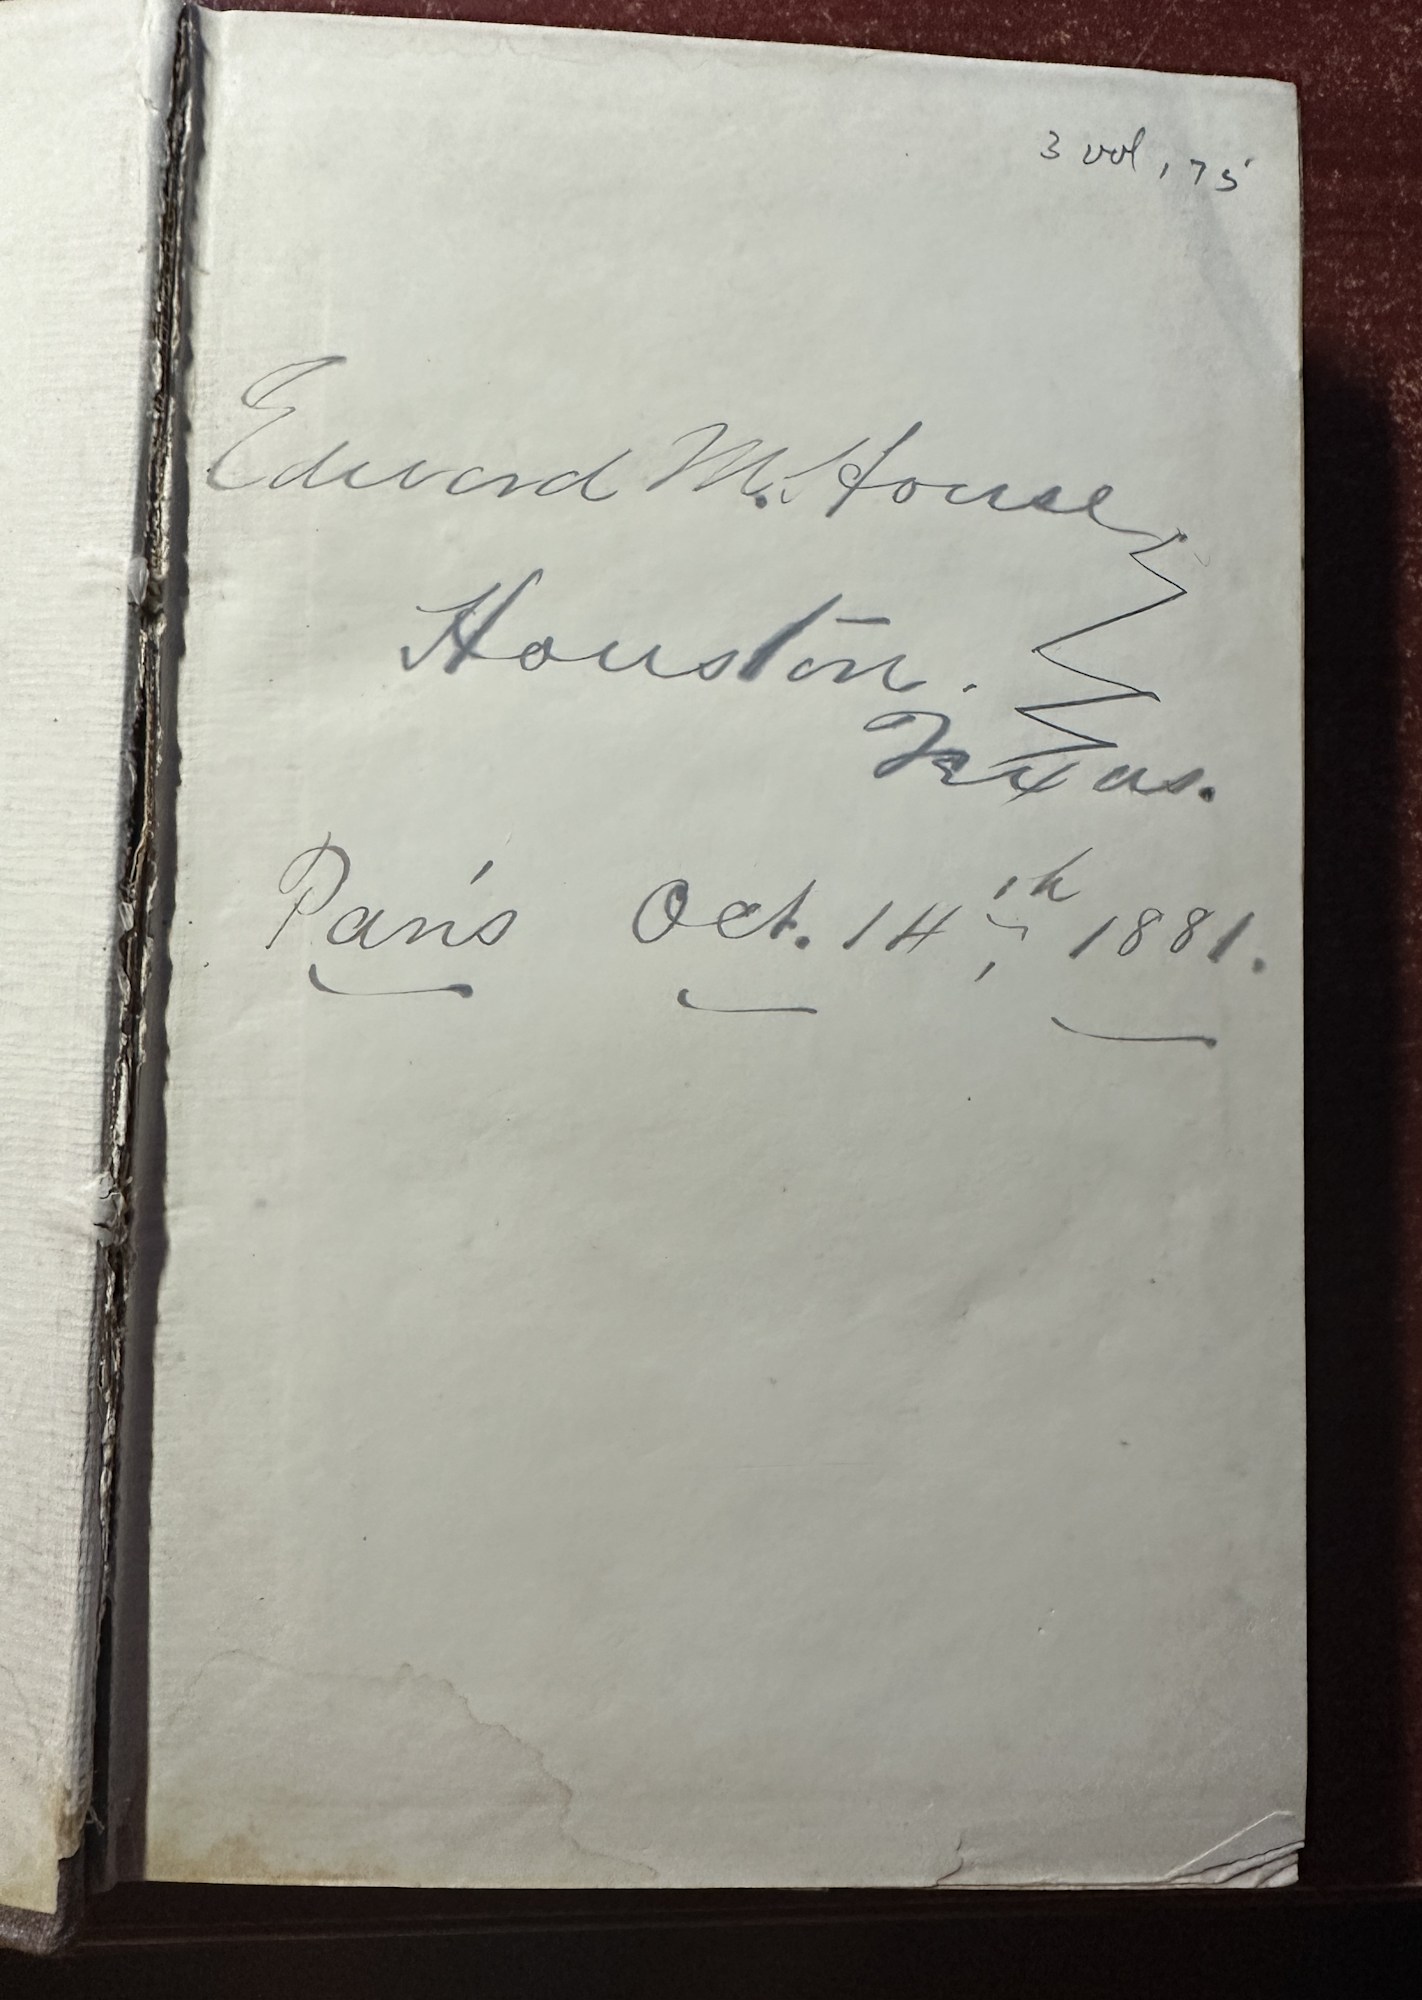 3 vol, 75
Edward M. House
Houston.
Texas.
Paris Oct. 14th, 1881.